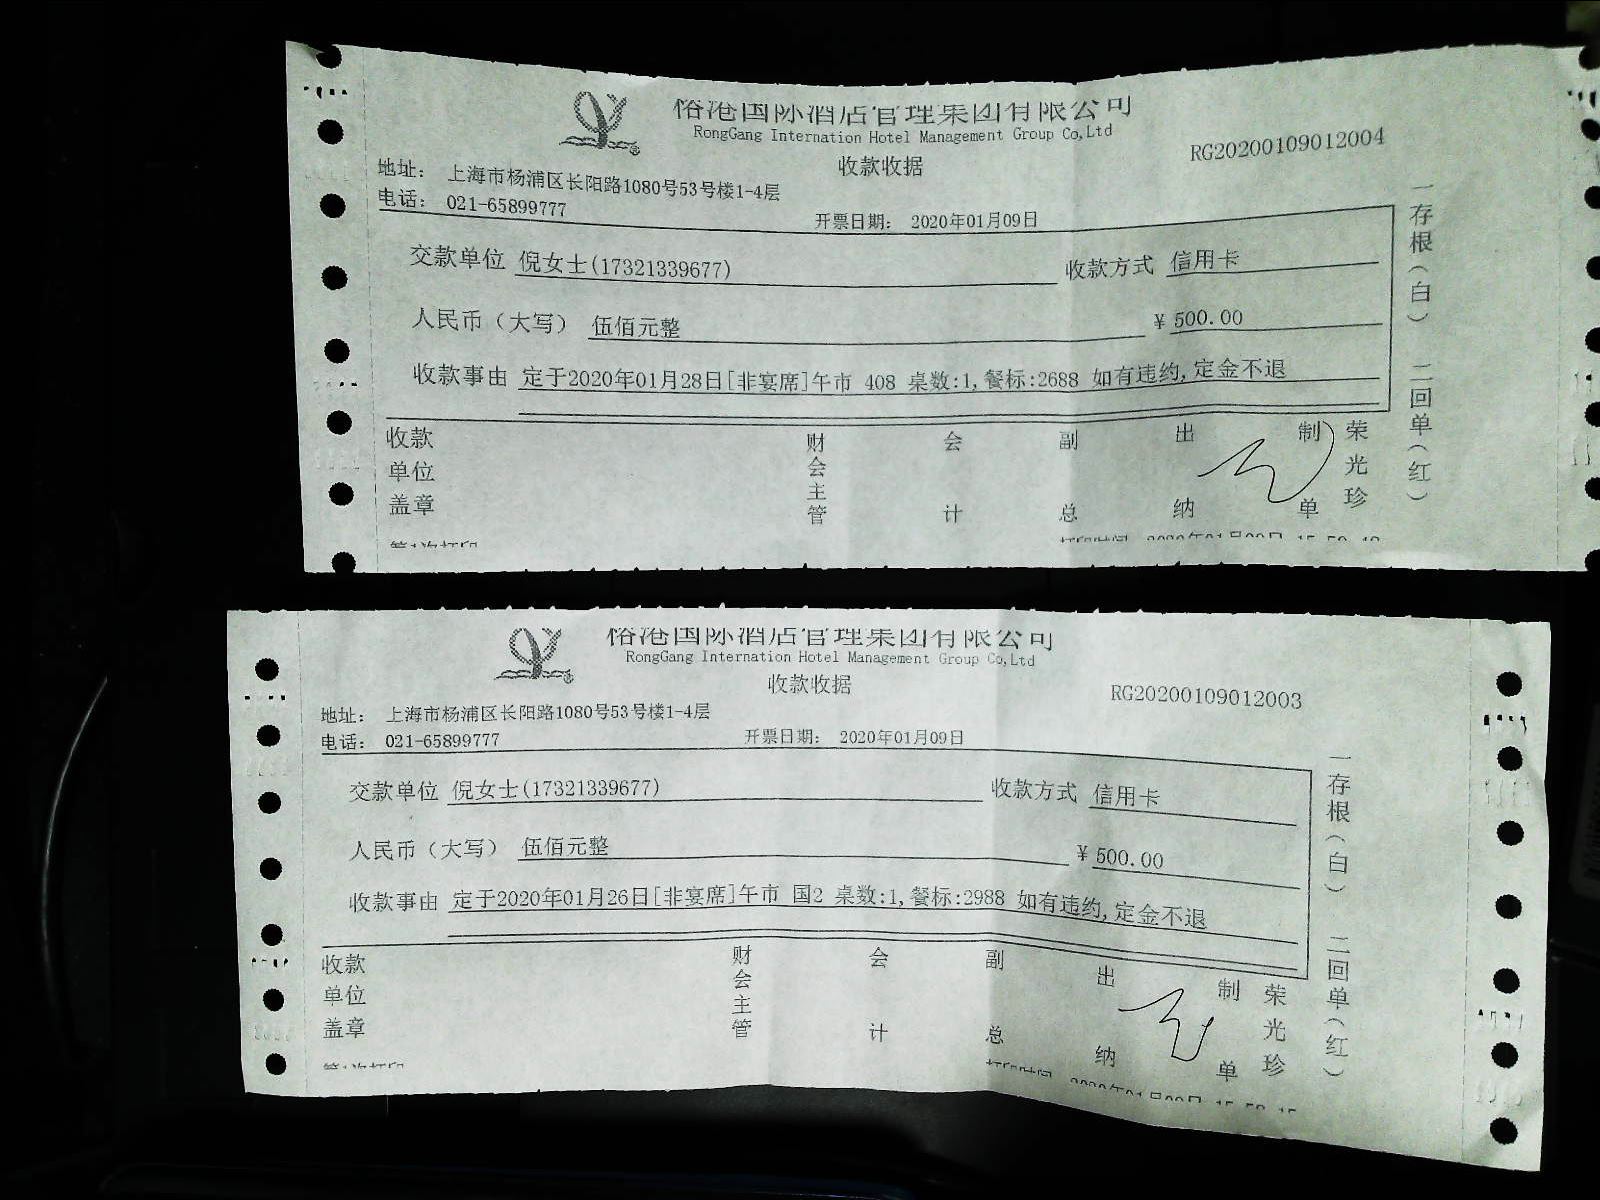 榕港国际酒店管理集团有限公司
RongGang Internation Hotel Management Group Co,Ltd
收款收据
RG20200109012004
地址： 上海市杨浦区长阳路1080号53号楼1-4层
电话： 021-65899777
开票日期： 2020年01月09日
交款单位 倪女士(17321339677) 收款方式 信用卡
人民币（大写） 伍佰元整 ¥ 500.00
收款事由 定于2020年01月28日[非宴席]午市 408 桌数:1,餐标:2688 如有违约,定金不退
一存根（白） 二回单（红）
收款单位盖章 财会主管 会计 副总 出纳 制单 荣光珍
第1次打印
榕港国际酒店管理集团有限公司
RongGang Internation Hotel Management Group Co,Ltd
收款收据
RG20200109012003
地址： 上海市杨浦区长阳路1080号53号楼1-4层
电话： 021-65899777
开票日期： 2020年01月09日
交款单位 倪女士(17321339677) 收款方式 信用卡
人民币（大写） 伍佰元整 ¥ 500.00
收款事由 定于2020年01月26日[非宴席]午市 国2 桌数:1,餐标:2988 如有违约,定金不退
一存根（白） 二回单（红）
收款单位盖章 财会主管 会计 副总 出纳 制单 荣光珍
第1次打印